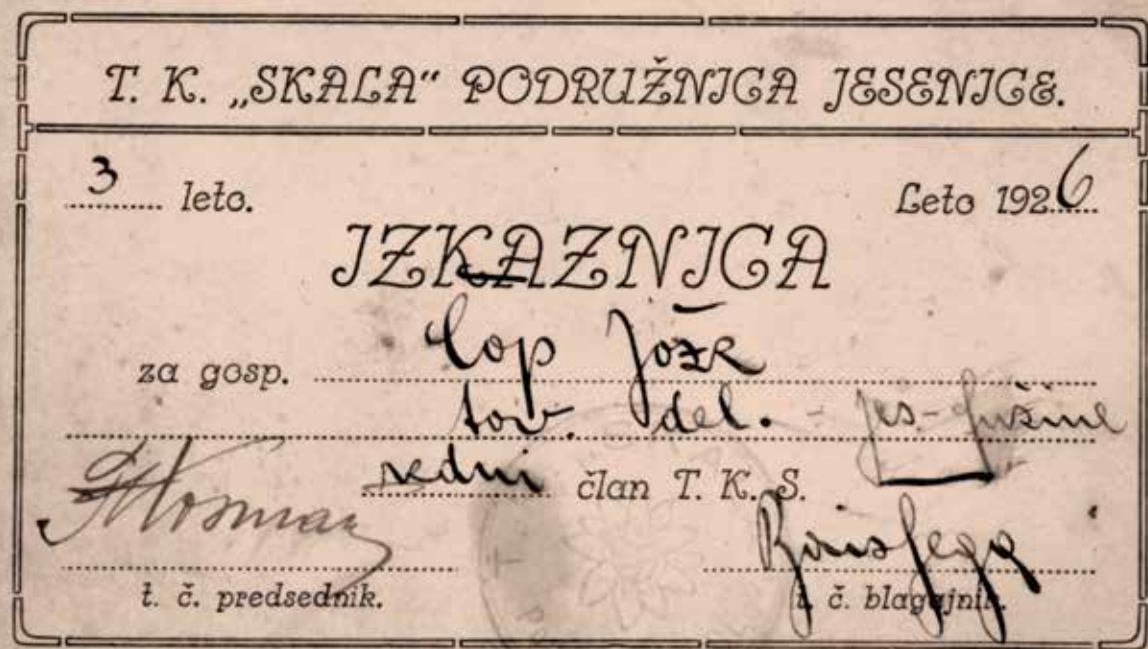 T. K. „SKALA“ PODRUŽNICA JESENICE.
3 leto. Leto 1926
IZKAZNICA
za gosp. Čop Jože
tov. del. - Jes-Fužine
redni član T. K. S.
t. č. predsednik. t. č. blagajnik.